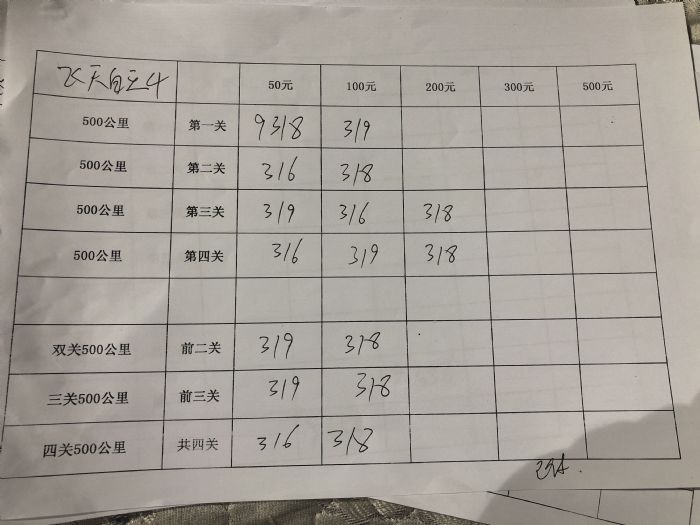 50元 100元 200元 300元 500元
500公里 第一关 9318 319
500公里 第二关 316 318
500公里 第三关 319 316 318
500公里 第四关 316 319 318
双关500公里 前二关 319 318
三关500公里 前三关 319 318
四关500公里 共四关 316 318